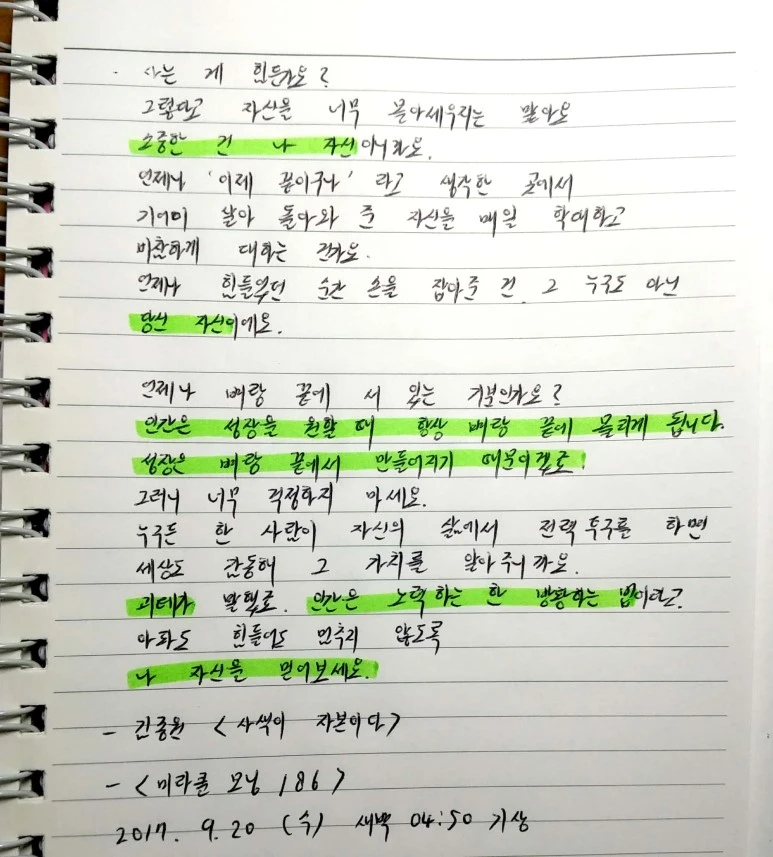 · 사는 게 힘든가요?
그렇다고 자신을 너무 몰아세우지는 말아요
소중한 건 나 자신이니까요.
언제나 '이제 끝이구나' 라고 생각한 곳에서
기어이 살아 돌아와 준 자신을 매일 학대하고
비참하게 대하는 건가요.
언제나 힘들었던 순간 손을 잡아준 건 그 누구도 아닌
당신 자신이에요.
언제나 벼랑 끝에 서 있는 기분인가요?
인간은 성장을 원할 때 항상 벼랑 끝에 몰리게 됩니다.
성장은 벼랑 끝에서 만들어지기 때문이겠죠.
그러니 너무 걱정하지 마세요.
누구든 한 사람이 자신의 삶에서 전력투구를 하면
세상도 감동해 그 가치를 알아 주니까요.
괴테가 말했죠. 인간은 노력하는 한 방황하는 법이라고.
아파도 힘들어도 멈추지 않도록
나 자신을 믿어보세요.
- 김종원 <사색이 자본이다>
- <미라클 모닝 186>
2017. 9. 20 (수) 새벽 04:50 기상